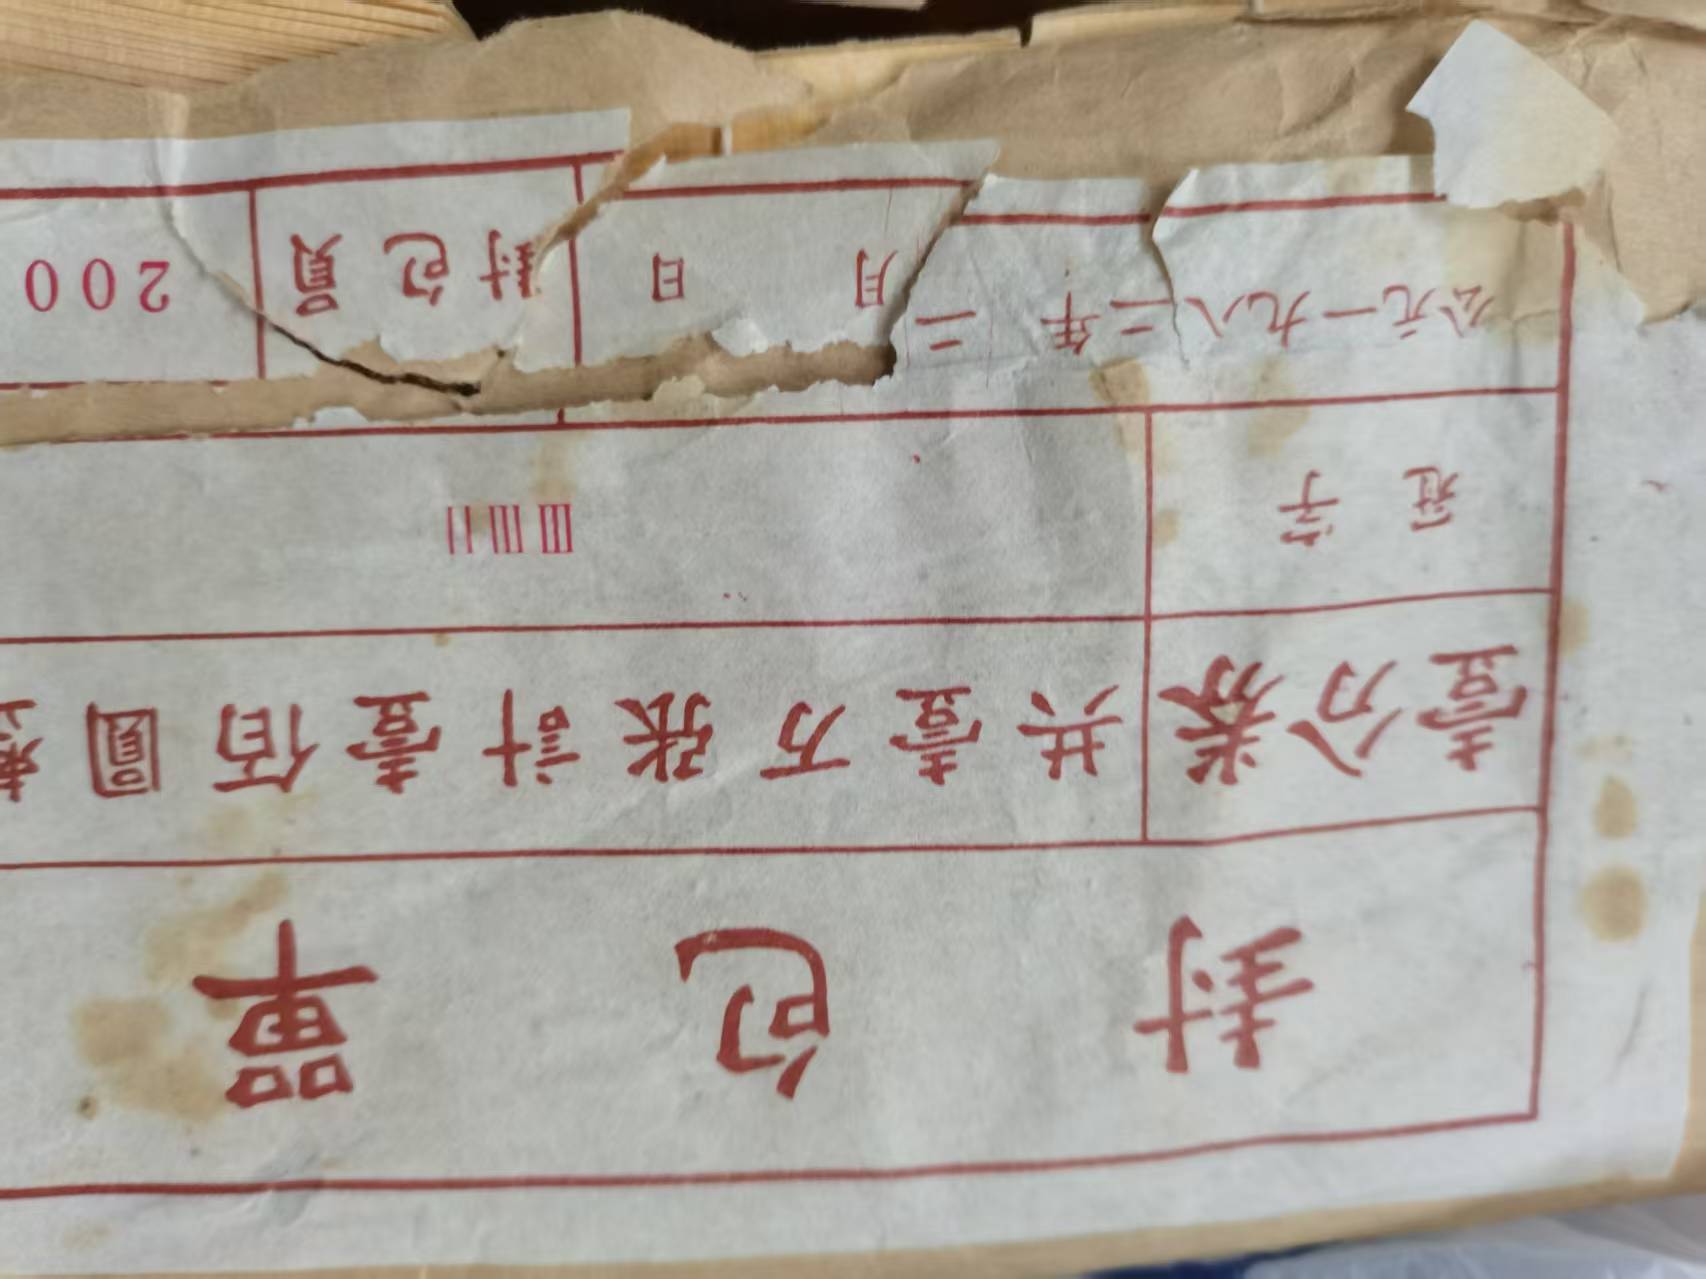 封包單
壹分券 共壹万张計壹佰圓整
冠字 ⅢⅢⅡ
公元一九八二年 二 月 日 封包員 200